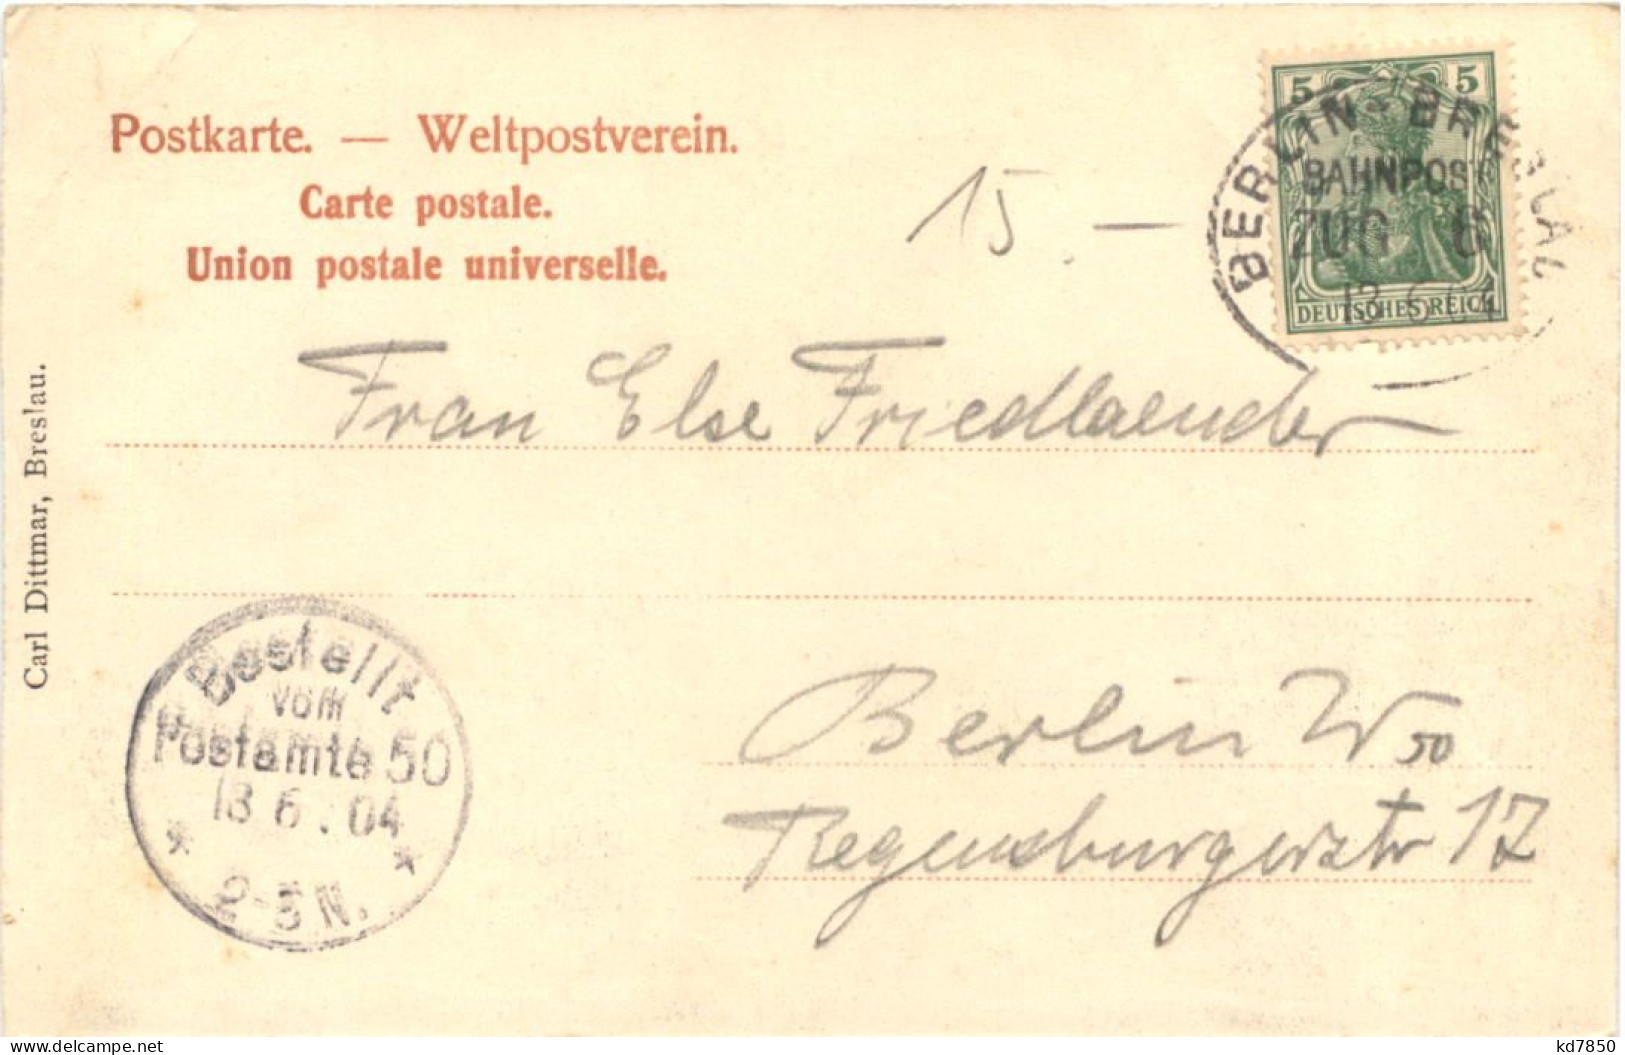 Postkarte. — Weltpostverein.
Carte postale.
Union postale universelle.
15.—
5 5
DEUTSCHES REICH
BERLIN-BRESLAU
BAHNPOST
ZUG 6
13 6 04
Frau Else Friedlaender
Berlin W 50
Regensburgerstr 17
Bestellt
vom
Postamte 50
13 6.04
2-3 N.
Carl Dittmar, Breslau.
www.delcampe.net
kd7850